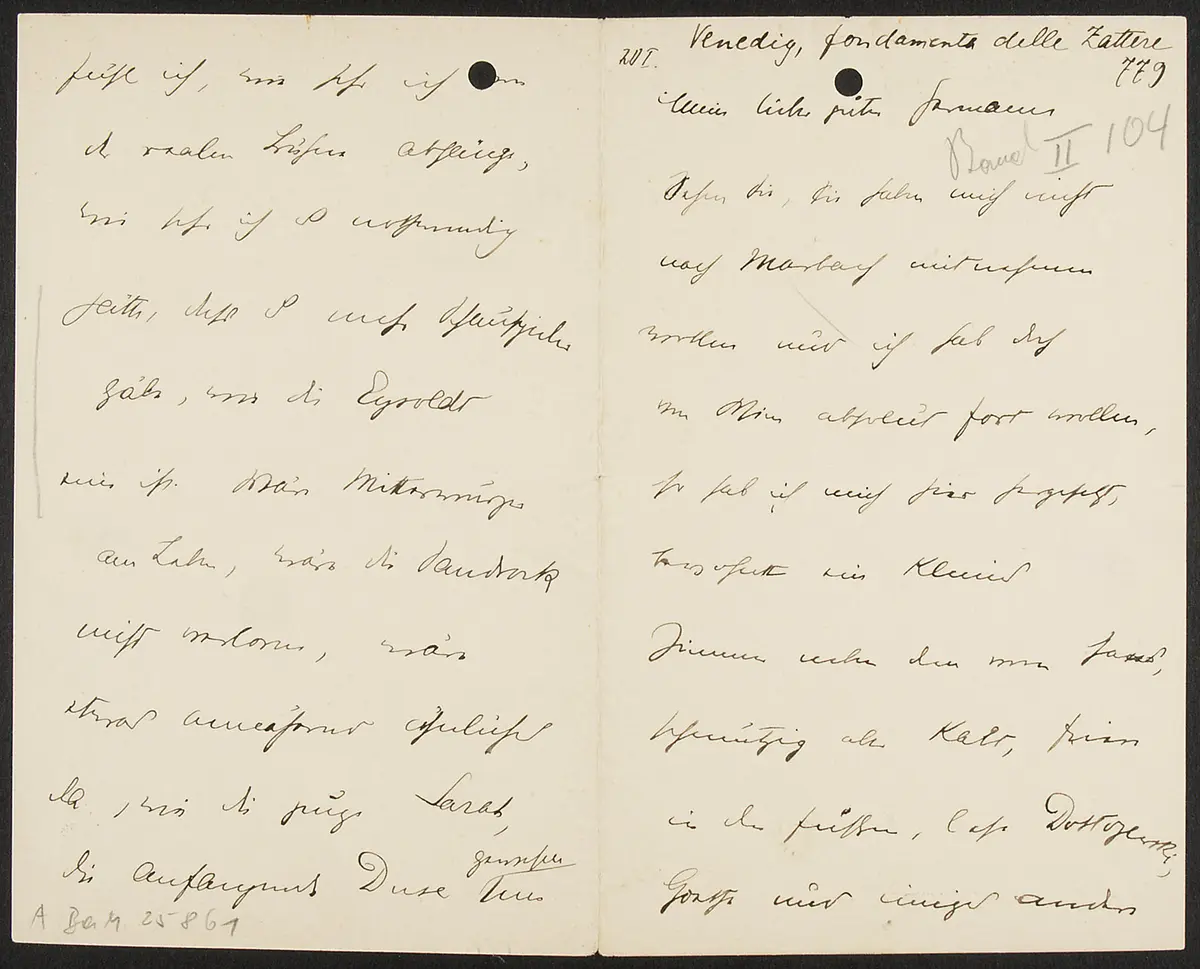 fühl ich, wie sehr ich von
der realen Bühne abhänge,
wie sehr ich es nothwendig
hätte, dass es mehr Schauspieler
gäbe, wie die Eysoldt
eine ist. Wäre Mitterwurzer
am Leben, wäre die Sandrock
nicht verloren, wäre
etwas annähernd ähnliches
da, wie die junge Sarah,
die anfangende Duse gewesen
A BaM 25861
Venedig, fondamenta delle Zattere
20 I.
779
mein lieber guter Hermann
Band II 104
Sehen Sie, Sie haben mich nicht
nach Marbach mitnehmen
wollen und ich hab doch
von Wien absolut fort wollen,
so hab ich mich hier hergesetzt,
ein kleines
Zimmer neben dem vom
schmutzig aber kalt, friere
in den Füßen, lese Dostojewski,
Goethe und einiges andere